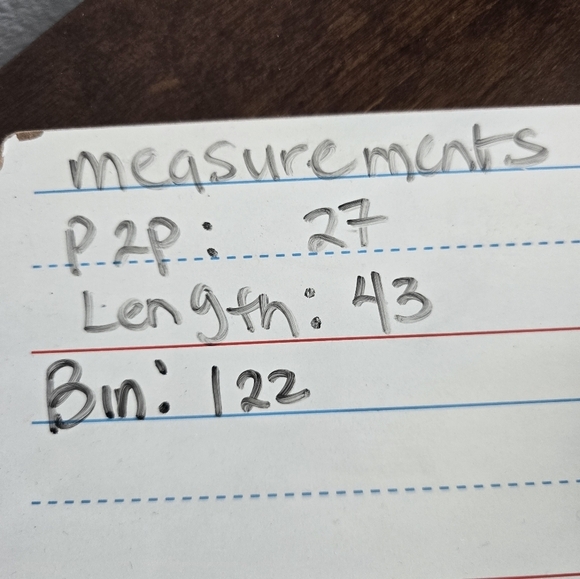 measurements
P2P: 27
Length: 43
Bin: 122